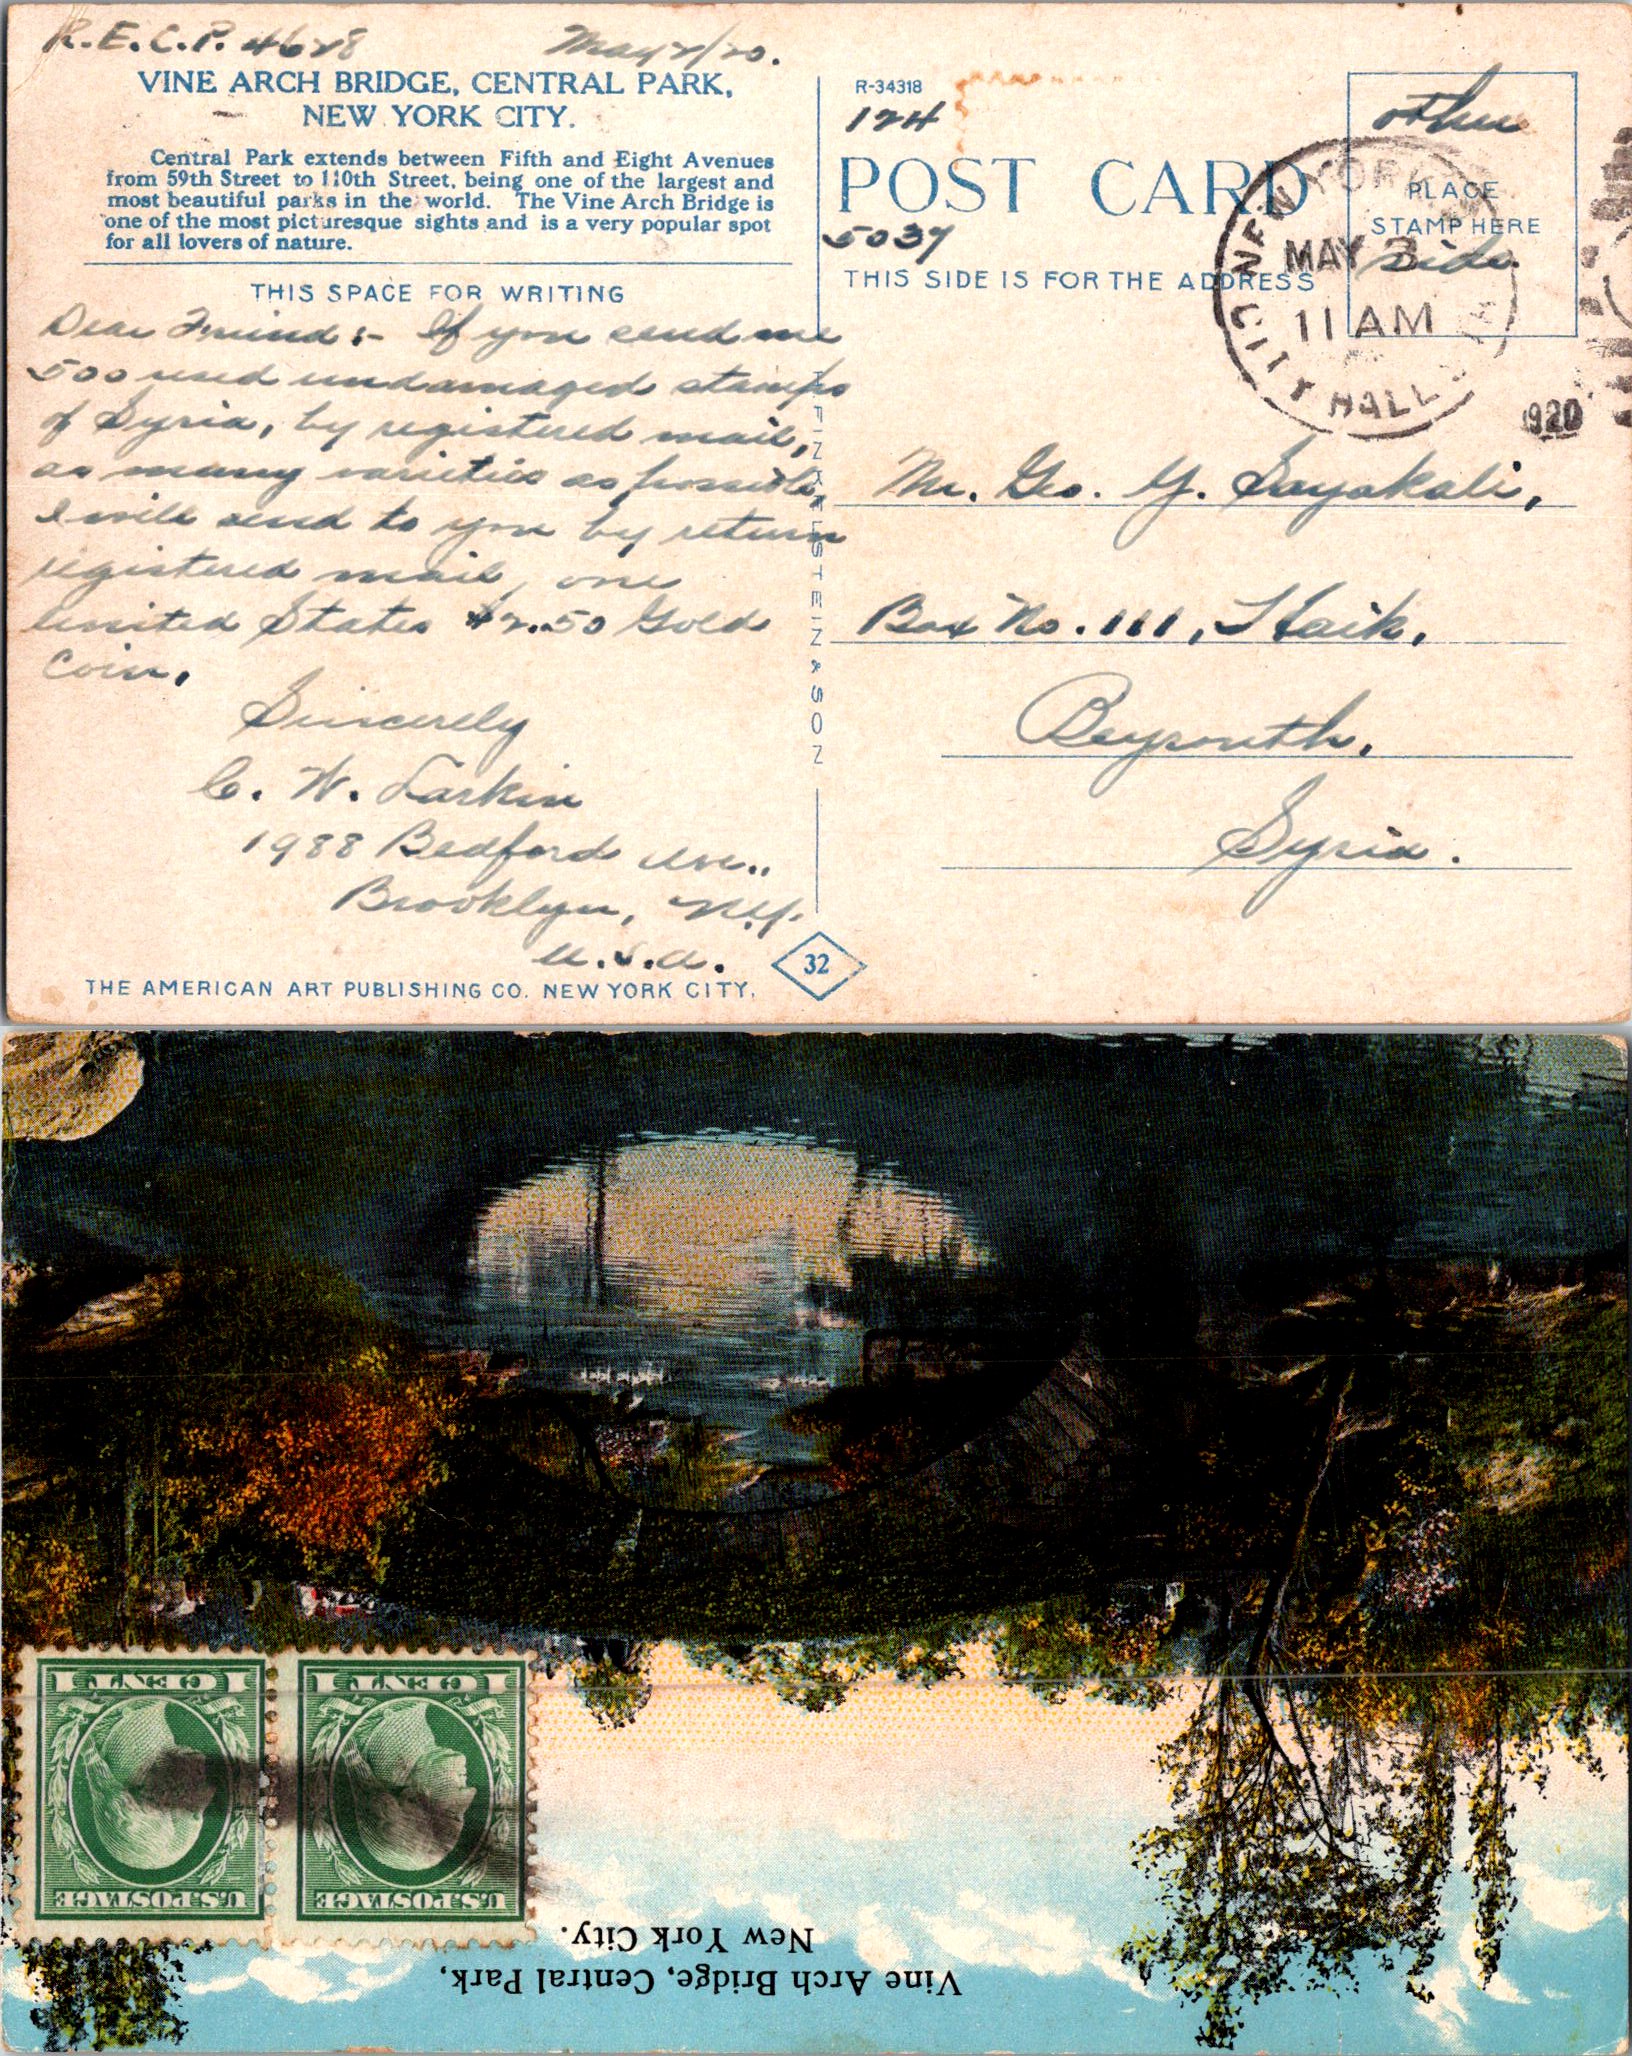 R.E.C.P. 4628 May 2/20.
VINE ARCH BRIDGE, CENTRAL PARK,
NEW YORK CITY.
Central Park extends between Fifth and Eight Avenues
from 59th Street to 110th Street, being one of the largest and
most beautiful parks in the world. The Vine Arch Bridge is
one of the most picturesque sights and is a very popular spot
for all lovers of nature.
THIS SPACE FOR WRITING
Dear Friend:- If you send me
500 used undamaged stamps
of Syria, by registered mail,
as many varieties as possible,
I will send to you by return
registered mail, one
United States $2.50 Gold
Coin.
Sincerely
C. W. Larkin
1988 Bedford Ave.,
Brooklyn, N.Y.
U.S.A.
THE AMERICAN ART PUBLISHING CO. NEW YORK CITY.
H. FINKELSTEIN & SON
32
R-34318
124
POST CARD
5037
THIS SIDE IS FOR THE ADDRESS
other
PLACE
STAMP HERE
side
NEW YORK
MAY
11 AM
CITY HALL
1920
Mr. Geo. Y. Sayakali,
Box No. 111, Haik,
Beyrouth,
Syria.
1 CENT 1 1 CENT 1
U.S. POSTAGE U.S. POSTAGE
Vine Arch Bridge, Central Park,
New York City.